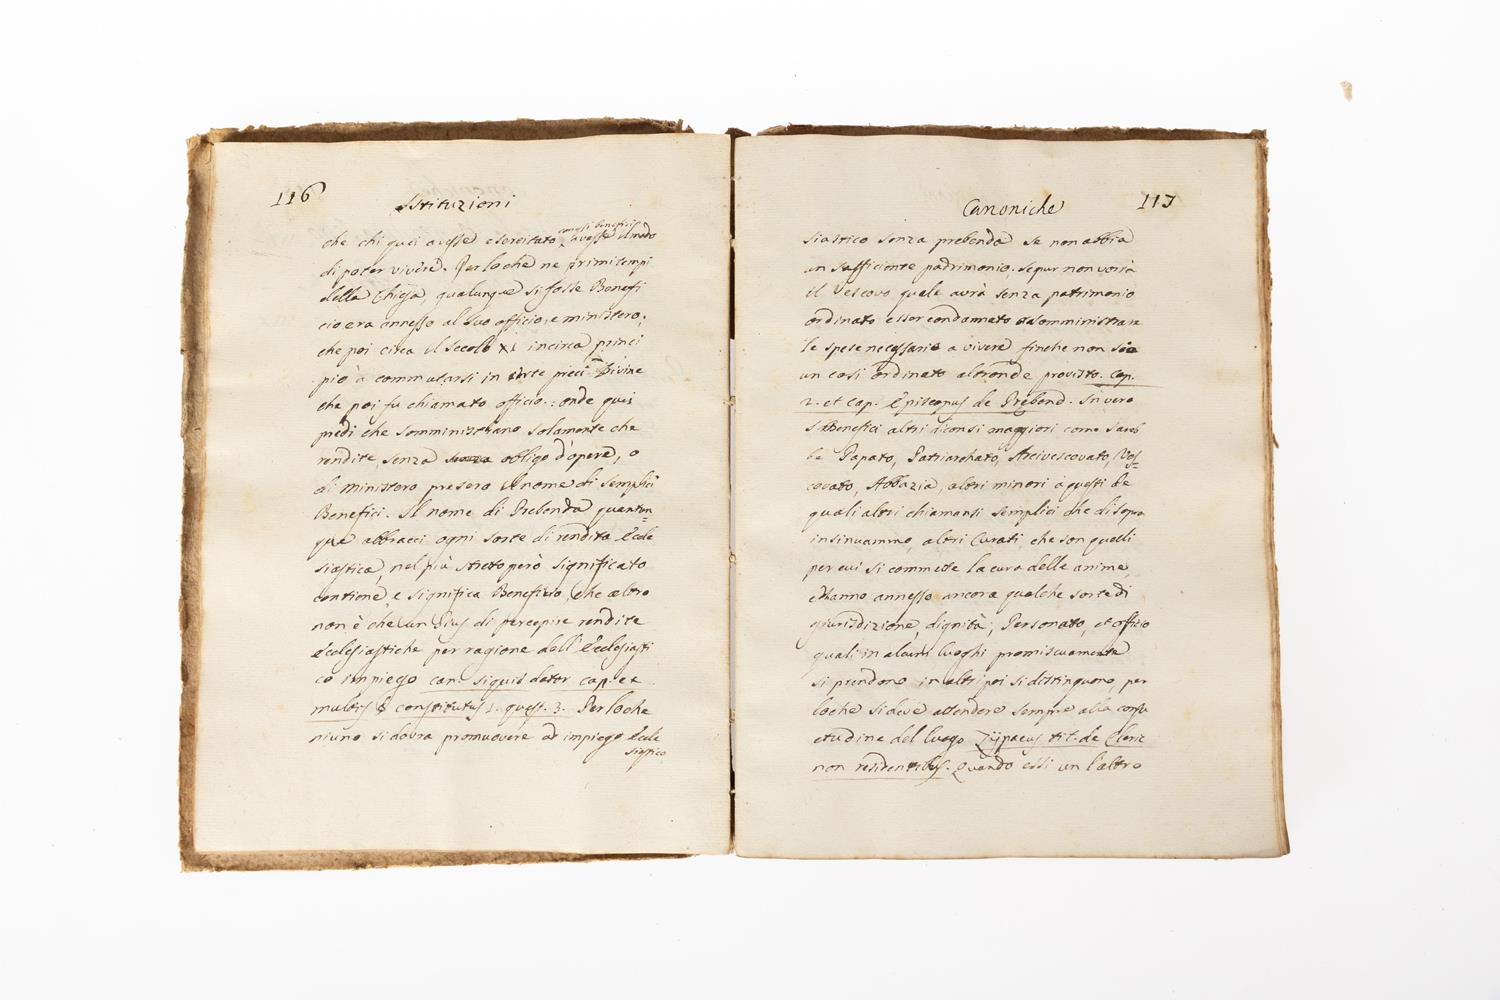 116
Istituzioni
che chi quei avesse esercitato con essi benefici avesse il modo
di poter vivere. Perloche ne primi tempi
della Chiesa, qualunque si fosse Benefi
cio era annesso al suo officio, e ministero;
che poi circa il secolo XI incirca princi
piò à commutarsi in preci Divine
che poi fu chiamato officio: onde quei
predi che somministrano solamente che
rendite, senza obligo d'opere, o
di ministero presero il nome di semplici
Benefici. Il nome di Prebenda quantun=
que abbracci ogni sorte di rendita Eccle
siastica, nel più stretto però significato
contiene, e significa Beneficio, che altro
non è che un Jius di percepire rendite
Ecclesiastiche per ragione dell'Ecclesiasti
co impiego can. siquis dator cap. ex
multis constitutus 1. quest. 3. Perloche
niuno si dovrà promuovere ad impiego Eccle
siastico
Canoniche 117
siastico senza prebenda se non abbia
un sufficiente padrimonio, sepur non vorrà
il Vescovo quale avrà senza patrimonio
ordinato esser condannato a somministrare
le spese necessarie a vivere finche non sia
un cosi ordinato altronde provisto. Cap.
2. et Cap. Episcopus de Prebend. In vero
i Benefici altri diconsi maggiori come sareb
be Papato, Patriarchato, Arcivescovato, Ves=
covato, Abbazia, altri minori a questi de
quali altri chiamansi semplici che di sopra
insinuammo, altri Curati, che son quelli
per cui si commette la cura delle anime,
ed hanno annesso ancora qualche sorte di
giurisdizione, dignità, Personato, et officio
quali in alcuni luoghi promiscuamente
si prendono in altri poi si distinguono, per
loche si deve attendere sempre alla consu
etudine del luogo Zijpaeus tit. de Cleric
non residentibus. Quando essi un l'altro